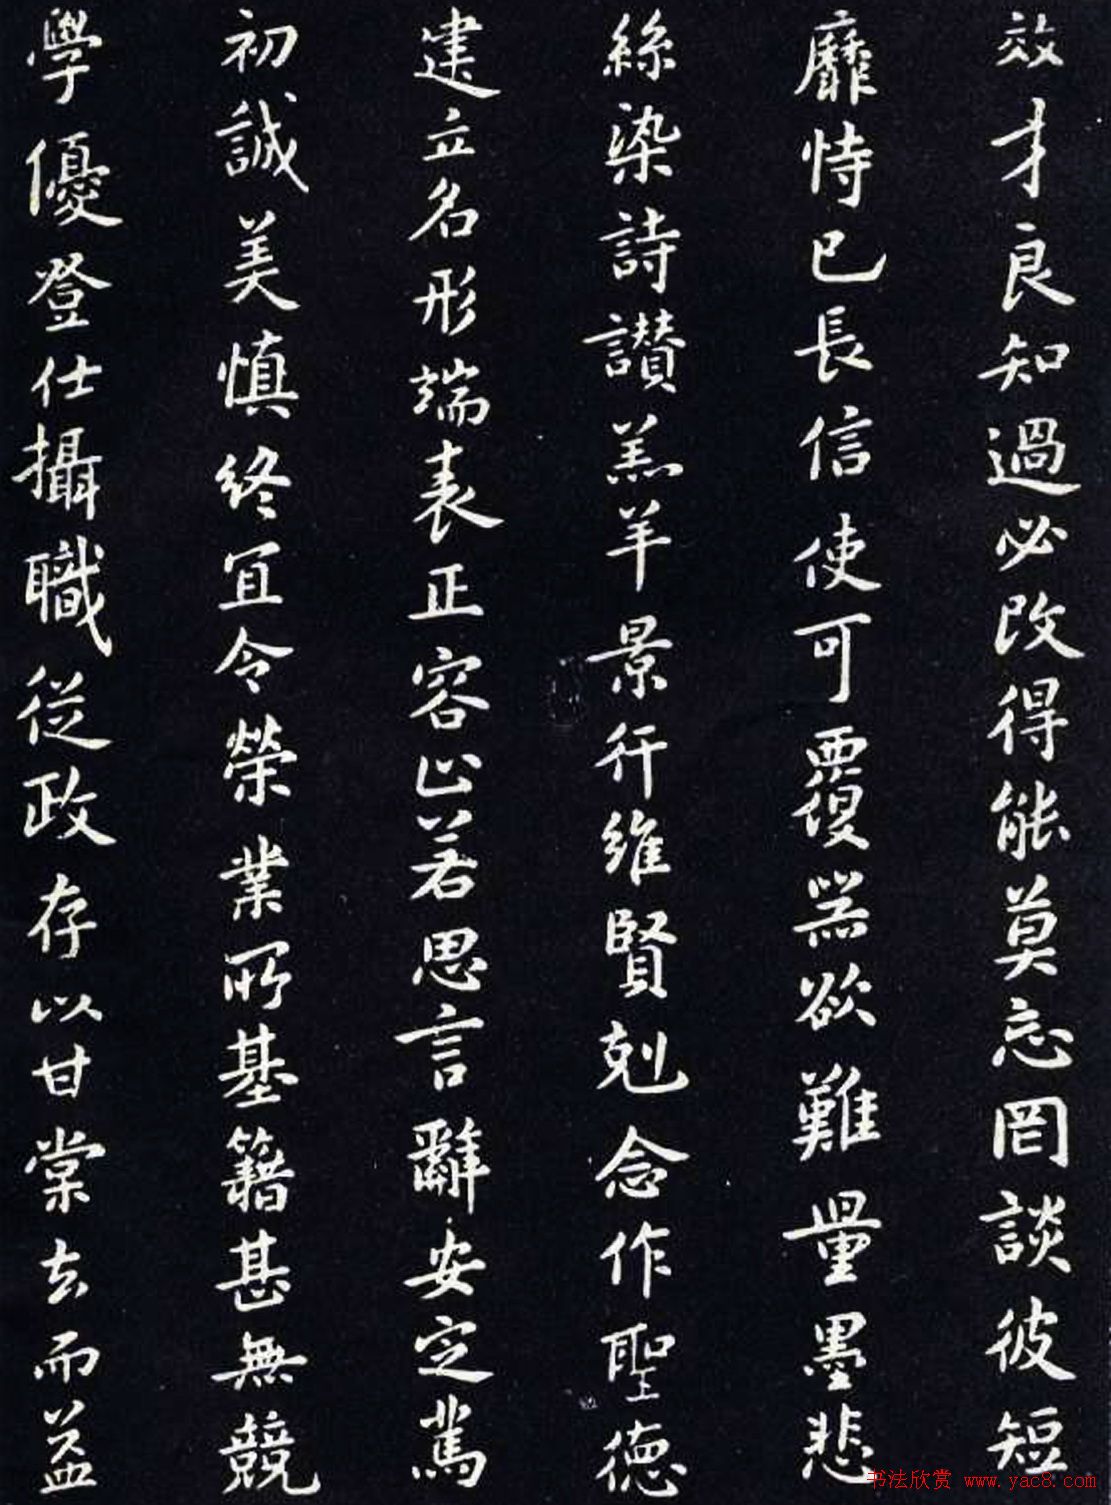 效才良知過必改得能莫忘罔談彼短
靡恃己長信使可覆器欲難量墨悲
絲染詩讃羔羊景行維賢剋念作聖德
建立名形端表正容止若思言辭安定篤
初誠美慎終宜令榮業所基籍甚無競
學優登仕攝職從政存以甘棠去而益
书法欣赏 www.yac8.com